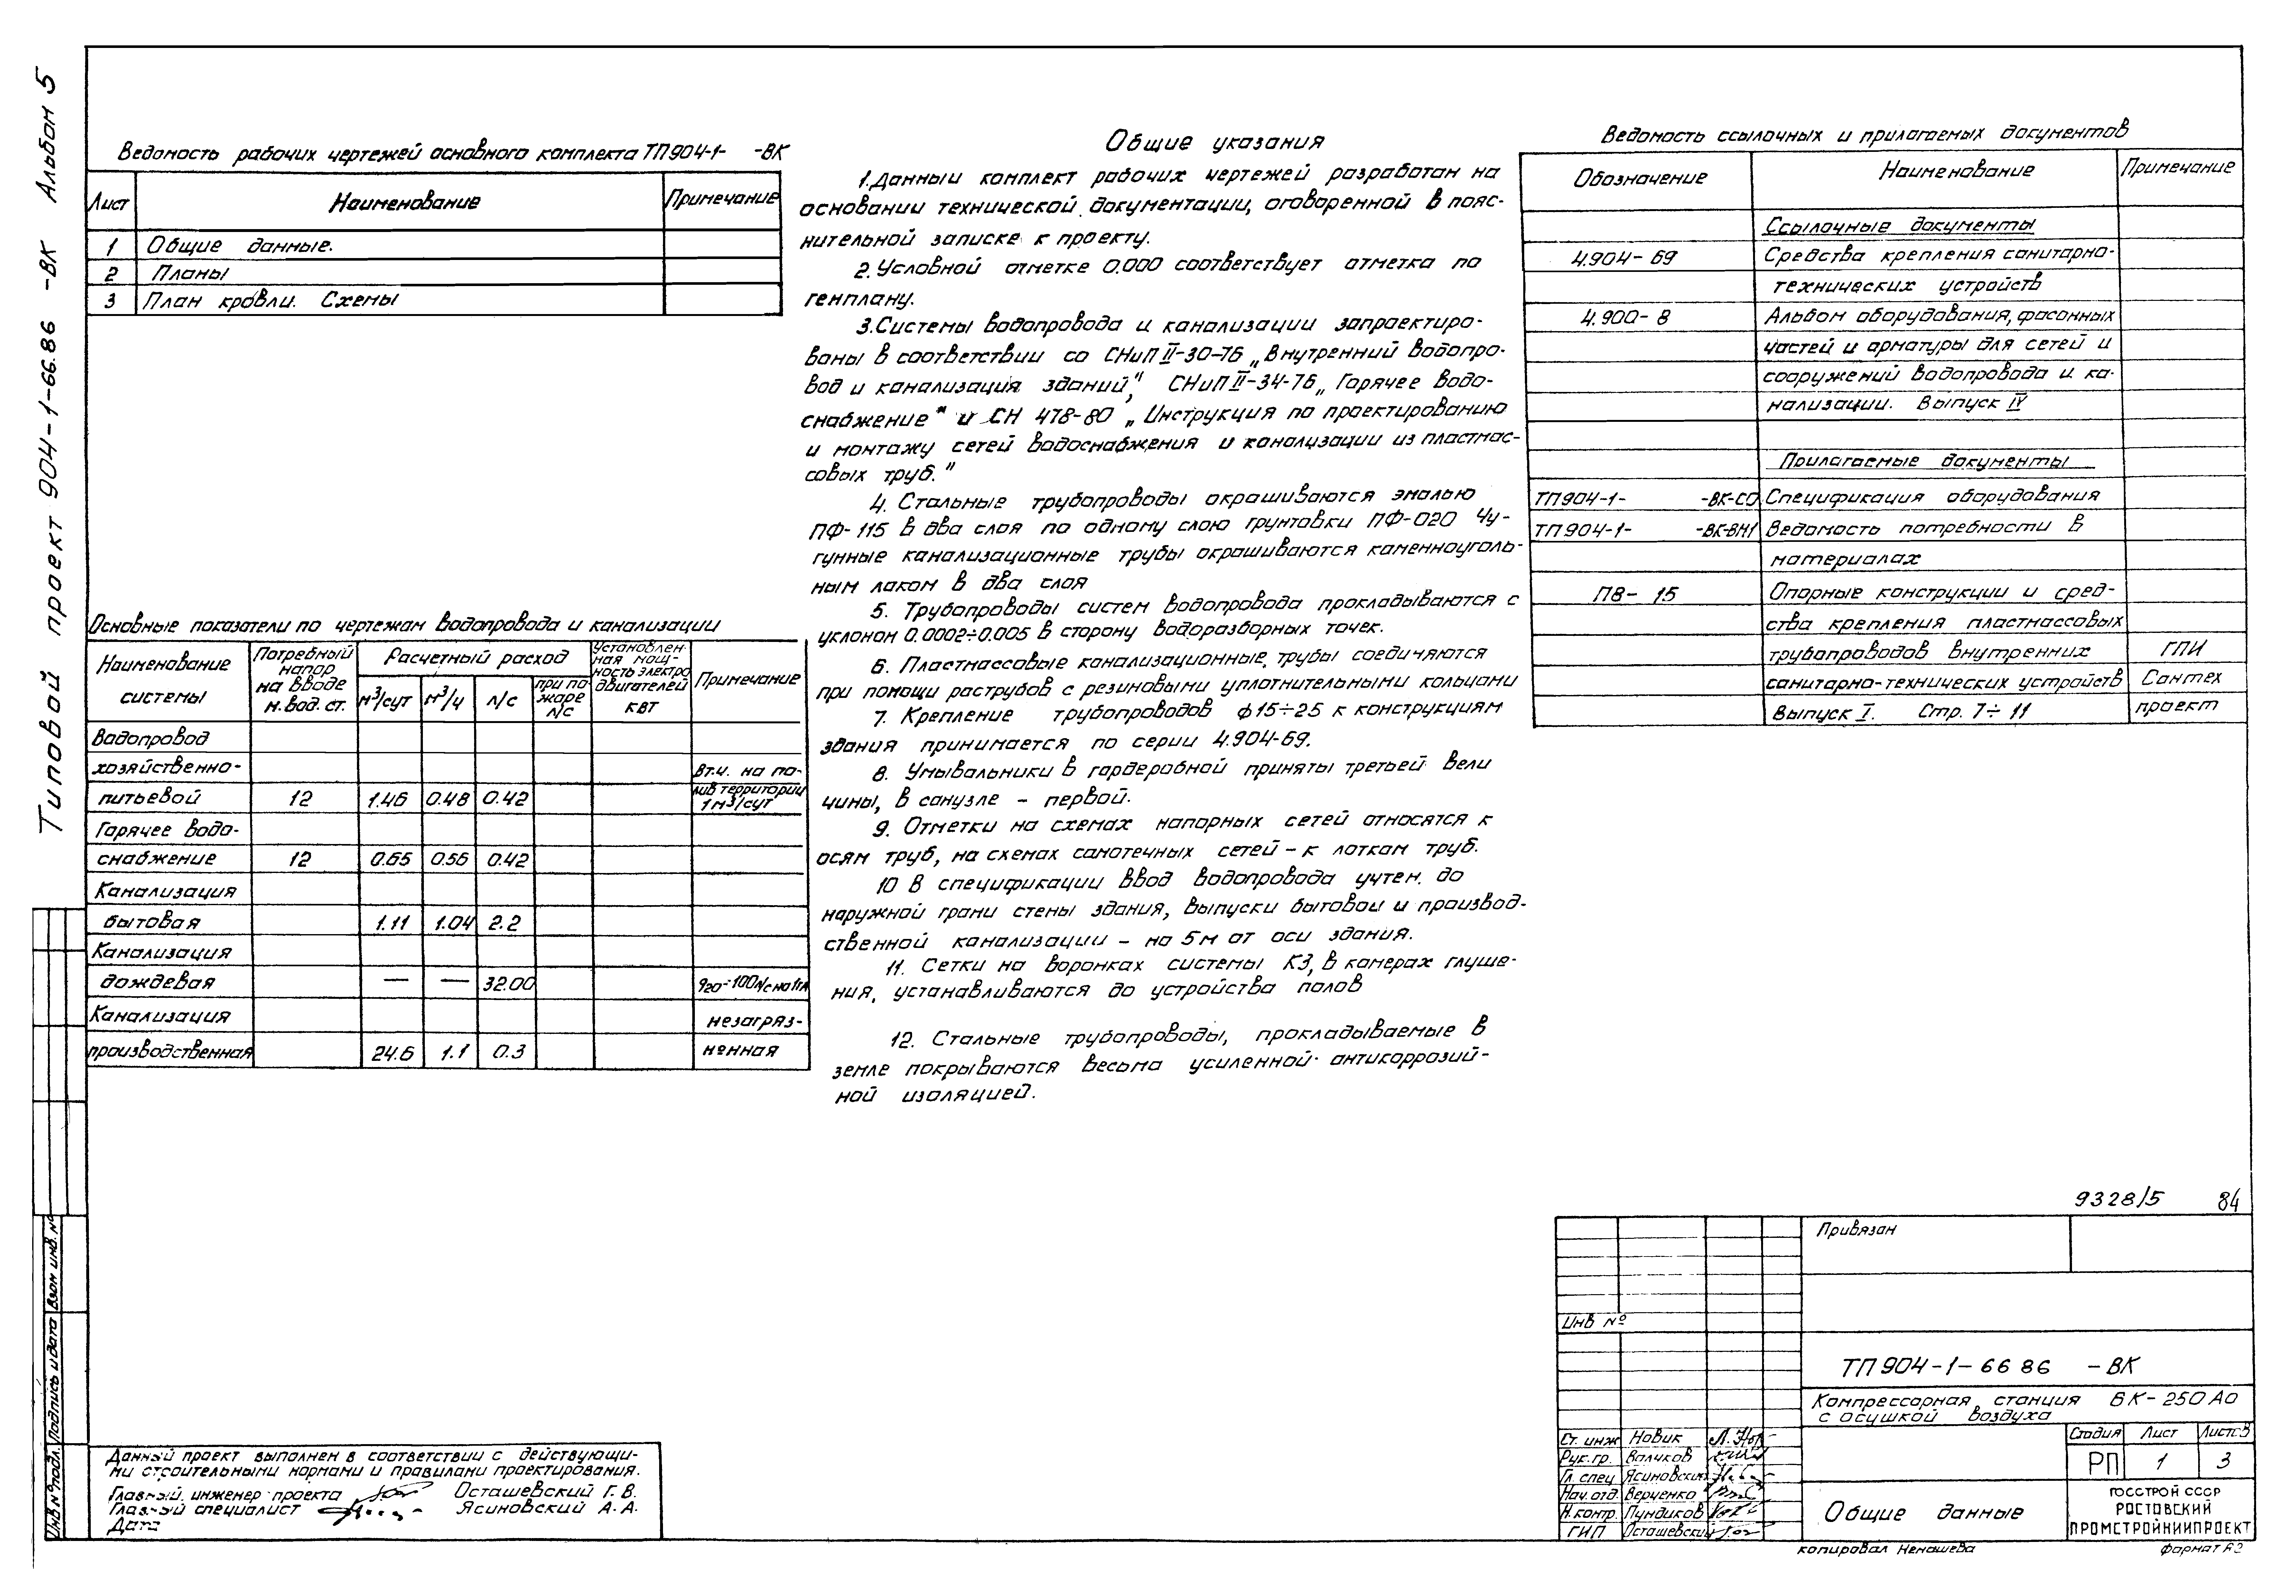 Типовой проект 904-1-66.86 -ВК Альбом 5
Ведомость рабочих чертежей основного комплекта ТП904-1- -ВК
Лист Наименование Примечание
1 Общие данные.
2 Планы
3 План кровли. Схемы
Основные показатели по чертежам водопровода и канализации
Наименование системы
Потребный напор на вводе м. вод. ст.
Расчетный расход
м³/сут м³/ч л/с при пожаре л/с
Установленная мощность электродвигателей квт
Примечание
Водопровод
хозяйственно- в т.ч. на по-
питьевой 12 1.46 0.48 0.42 лив территории 1м3/сут
Горячее водо-
снабжение 12 0.65 0.56 0.42
Канализация
бытовая 1.11 1.04 2.2
Канализация
дождевая — — 32.00 q20-100л/с на 1га
Канализация незагряз-
производственная 24.6 1.1 0.3 ненная
Общие указания
1. Данный комплект рабочих чертежей разработан на
основании технической документации, оговоренной в пояс-
нительной записке к проекту.
2. Условной отметке 0.000 соответствует отметка по
генплану.
3. Системы водопровода и канализации запроектиро-
ваны в соответствии со СНиП II-30-76 „Внутренний водопро-
вод и канализация зданий", СНиП II-34-76 „Горячее водо-
снабжение" и СН 478-80 „Инструкция по проектированию
и монтажу сетей водоснабжения и канализации из пластмас-
совых труб."
4. Стальные трубопроводы окрашиваются эмалью
ПФ-115 в два слоя по одному слою грунтовки ПФ-020 Чу-
гунные канализационные трубы окрашиваются каменноуголь-
ным лаком в два слоя
5. Трубопроводы систем водопровода прокладываются с
уклоном 0.0002÷0.005 в сторону водоразборных точек.
6. Пластмассовые канализационные, трубы соединяются
при помощи раструбов с резиновыми уплотнительными кольцами
7. Крепление трубопроводов ф15÷25 к конструкциям
здания принимается по серии 4.904-69.
8. Умывальники в гардеробной приняты третьей вели
чины, в санузле – первой.
9. Отметки на схемах напорных сетей относятся к
осям труб, на схемах самотечных сетей – к лоткам труб.
10 В спецификации ввод водопровода учтен. до
наружной грани стены здания, выпуски бытовой и производ-
ственной канализации – на 5м от оси здания.
11. Сетки на воронках системы К3, в камерах глуше-
ния, устанавливаются до устройства полов
12. Стальные трубопроводы, прокладываемые в
земле покрываются весьма усиленной антикоррозий-
ной изоляцией.
Ведомость ссылочных и прилагаемых документов
Обозначение Наименование Примечание
Ссылочные документы
4.904-69 Средства крепления санитарно-
технических устройств
4.900-8 Альбом оборудования, фасонных
частей и арматуры для сетей и
сооружений водопровода и ка-
нализации. Выпуск IV
Прилагаемые документы
ТП904-1- -ВК-СО Спецификация оборудования
ТП904-1- -ВК-ВМ1 Ведомость потребности в
материалах
П8-15 Опорные конструкции и сред-
ства крепления пластмассовых
трубопроводов внутренних ГПИ
санитарно-технических устройств Сантех
Выпуск I. Стр. 7÷11 проект
9328/5 84
Привязан
Инв №
ТП 904-1-66 86 -ВК
Компрессорная станция 6К-250АО
с осушкой воздуха
Стадия Лист Листов
РП 1 3
Общие данные
ГОССТРОЙ СССР
РОСТОВСКИЙ
ПРОМСТРОЙНИИПРОЕКТ
Ст. инж Новик
Рук. гр. Валуков
Гл. спец Ясиновский
Нач. отд. Верченко
Н. контр. Пундиков
ГИП Осташевский
копировал Ненашева формат А2
Данный проект выполнен в соответствии с действующи-
ми строительными нормами и правилами проектирования.
Главный инженер проекта Осташевский Г. В.
Главный специалист Ясиновский А. А.
Дата
Инв № подл. Подпись и дата Взам инв. №